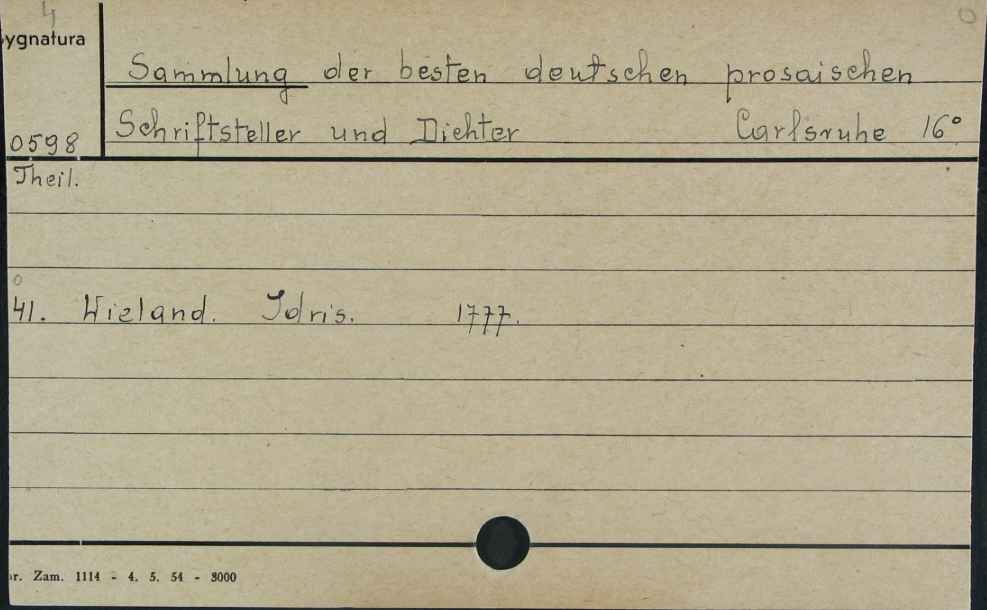 4
ygnatura
Sammlung der besten deutschen prosaischen
0598 Schriftsteller und Dichter Carlsruhe 16°
Theil.
41. Wieland. Idris. 1777.
r. Zam. 1114 - 4. 5. 54 - 3000